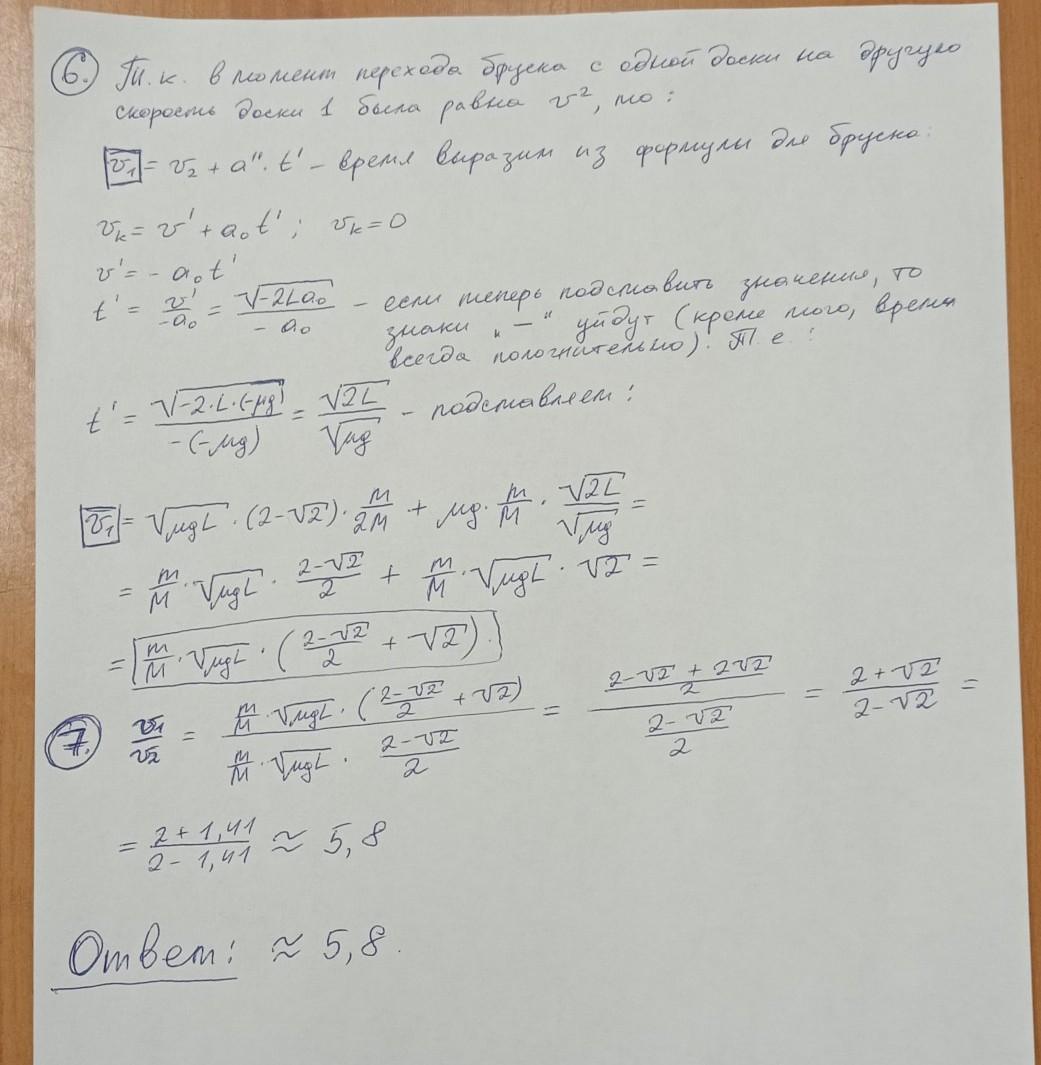 6. Т.к. в момент перехода бруска с одной доски на другую
скорость доски 1 была равна v², то:
v₁ = v₂ + a''·t' – время выразим из формулы для бруска:
vₖ = v' + a₀t'; vₖ = 0
v' = -a₀t'
t' = v'/-a₀ = √(-2La₀)/-a₀ – если теперь подставить значения, то
знаки „–“ уйдут (кроме того, время
всегда положительно). Т.е.:
t' = √(-2·L·(-μg))/-(-μg) = √2L/√μg – подставляем:
v₁ = √μgL·(2-√2)·m/2M + μg·m/M·√2L/√μg =
= m/M·√μgL·(2-√2)/2 + m/M·√μgL·√2 =
= m/M·√μgL·((2-√2)/2 + √2).
7. v₁/v₂ = (m/M·√μgL·((2-√2)/2 + √2))/(m/M·√μgL·(2-√2)/2) = ((2-√2+2√2)/2)/((2-√2)/2) = (2+√2)/(2-√2) =
= (2+1,41)/(2-1,41) ≈ 5,8
Ответ: ≈ 5,8.